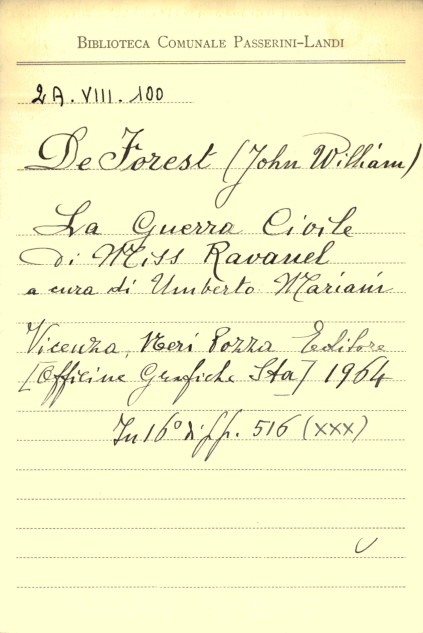 BIBLIOTECA COMUNALE PASSERINI-LANDI
2A.VIII.100
De Forest (John William)
La Guerra Civile
di Miss Ravanel
a cura di Umberto Mariani
Vicenza, Neri Pozza Editore
[Officine Grafiche Sta] 1964
In 16° di pp. 516 (XXX)